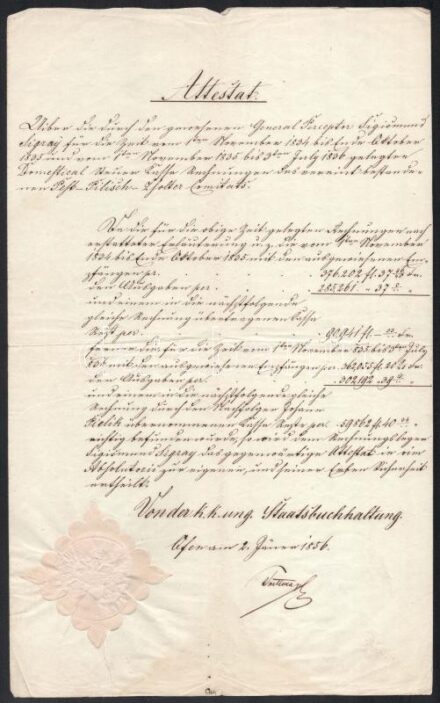 Attestat.
Ueber die durch den gewesenen General Perceptor Sigismund
Sigray für die Zeit vom 1ten November 1834 bis Ende Oktober
1835 und vom 1ten November 1835 bis July 1836 gelegten
Domestical Steuer Cassa Rechnungen des vereint bestande-
nen Pest-Pilisch-Solter Comitats.
Da die für die obige Zeit gelegten Rechnungen nach
erstatteter Erläuterung u. z. die vom 1ten November
1834 bis Ende Oktober 1835 mit den ausgewiesenen Em-
pfängen pr. 376.202 fl. 37
den Ausgaben pr. 285261 " 37
und einem in die nächstfolgende
gleiche Rechnung übertragenen Cassa
Rest per 90.941 fl.
ferner die für die Zeit vom 1ten November 835 bis July
836 mit den ausgewiesenen Empfängen pr.
den Ausgaben pr. 302192 " 39
und einem in die nächstfolgende gleiche
Rechnung durch den Nachfolger Johann
übernommenen Cassa Reste per 59862 fl. 40
richtig befunden wurde, so wird dem Rechnungsleger
Sigismund Sigray das gegenwärtige Attestat in vim
Absolutorii zur eigenen, und seiner Erben Sicherheit
ertheilt.
Von der k. k. ung. Staatsbuchhaltung.
Ofen am 2. Jäner 1856.